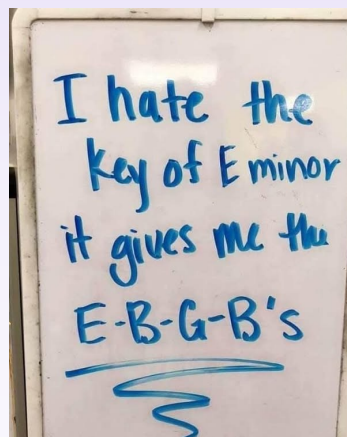 I hate the
key of E minor
it gives me the
E-B-G-B's